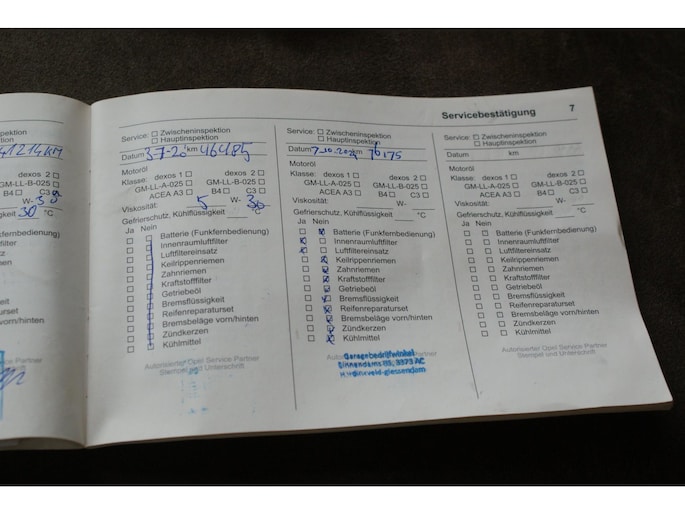 Servicebestätigung 7
41214KM
30 °C
Service: □ Zwischeninspektion
□ Hauptinspektion
Datum 3-7-20 km 46485
Motoröl
Klasse: dexos 1 □ dexos 2 □
GM-LL-A-025 □ GM-LL-B-025 □
ACEA A3 □ B4 □ C3 □
Viskosität: 5 W- 30
Gefrierschutz, Kühlflüssigkeit °C
Ja Nein
□ □ Batterie (Funkfernbedienung)
□ □ Innenraumluftfilter
□ □ Luftfiltereinsatz
□ □ Keilrippenriemen
□ □ Zahnriemen
□ □ Kraftstofffilter
□ □ Getriebeöl
□ □ Bremsflüssigkeit
□ □ Reifenreparaturset
□ □ Bremsbeläge vorn/hinten
□ □ Zündkerzen
□ □ Kühlmittel
Autorisierter Opel Service Partner
Stempel und Unterschrift
Service: □ Zwischeninspektion
□ Hauptinspektion
Datum km 70175
Motoröl
Klasse: dexos 1 □ dexos 2 □
GM-LL-A-025 □ GM-LL-B-025 □
ACEA A3 □ B4 □ C3 □
Viskosität: W-
Gefrierschutz, Kühlflüssigkeit °C
Ja Nein
Batterie (Funkfernbedienung)
Innenraumluftfilter
Luftfiltereinsatz
Keilrippenriemen
Zahnriemen
Kraftstofffilter
Getriebeöl
Bremsflüssigkeit
Reifenreparaturset
Bremsbeläge vorn/hinten
Zündkerzen
Kühlmittel
Garagebedrijf winkel
3373 AC
giessendam
Service: □ Zwischeninspektion
□ Hauptinspektion
Datum km
Motoröl
Klasse: dexos 1 □ dexos 2 □
GM-LL-A-025 □ GM-LL-B-025 □
ACEA A3 □ B4 □ C3 □
Viskosität: W-
Gefrierschutz, Kühlflüssigkeit °C
Ja Nein
□ □ Batterie (Funkfernbedienung)
□ □ Innenraumluftfilter
□ □ Luftfiltereinsatz
□ □ Keilrippenriemen
□ □ Zahnriemen
□ □ Kraftstofffilter
□ □ Getriebeöl
□ □ Bremsflüssigkeit
□ □ Reifenreparaturset
□ □ Bremsbeläge vorn/hinten
□ □ Zündkerzen
□ □ Kühlmittel
Autorisierter Opel Service Partner
Stempel und Unterschrift